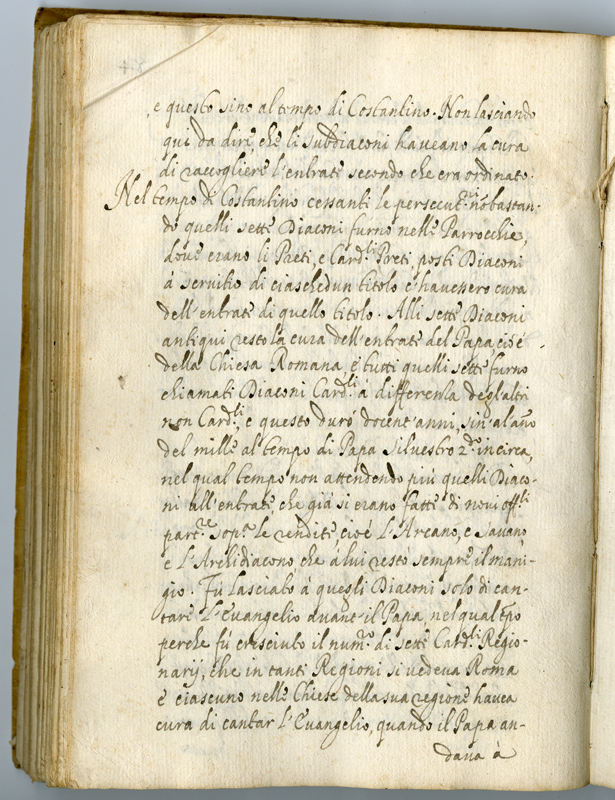 e questo sino al tempo di Costantino. Non lasciando
qui da dire che li subdiaconi haveano la cura
di raccogliere l'entrate secondo che era ordinato.
Nel tempo di Costantino cessanti le persecut.ni nō bastan-
do quelli sette Diaconi furno nelle Parrocchie,
dove erano li Preti, e Card.li Preti, posti Diaconi
à servitio di ciaschedun titolo e havessero cura
dell'entrate di quello titolo. Alli sette Diaconi
antiqui restò la cura dell'entrate del Papa cioè
della Chiesa Romana, e tutti quelli sette furno
chiamati Diaconi Card.li à differenza degl'altri
non Card.li, e questo durò docent'anni, sin'al año
del mille al tempo di Papa Silvestro 2.do incirca,
nel qual tempo non attendendo più quelli Diaco-
ni all'entrate, che già si erano fatti di novi off.li
part.re sop.a le rendite, cioè l'Arcano, e Savano
e l'Archidiacono, che à lui restò sempre il mani-
gio. Fù lasciato à quegli Diaconi solo di can-
tare l'Evangelio avanti il Papa, nel qual tp̄o
perche fù cresciuto il num.o di sette Card.li Regio-
narij, che in tanti Regioni si vedeva Roma
e ciascuno nelle Chiese della sua regione havea
cura di cantar l'Evangelio, quando il Papa an-
dava à